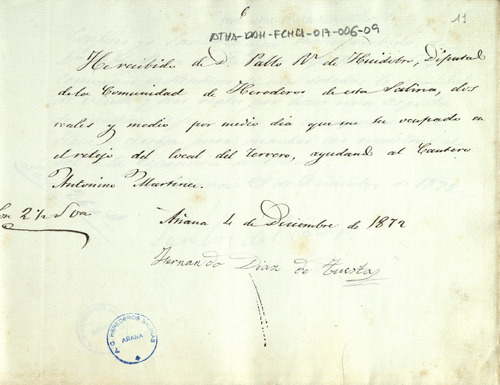 6
11
ATHA-DAH-FCHGA-017-006-09
He recibido de D. Pablo Rz de Huidobro, Diputado
de la Comunidad de Herederos de esta Salina, dos
reales y medio por medio dia que me he ocupado en
el relejo del local del terrero, ayudando al Cantero
Antonino Martinez.
Son 2½ rs vn
Añana 4 de Diciembre de 1872
Fernando Diaz de Tuesta
HEREDEROS SALINAS
AÑANA